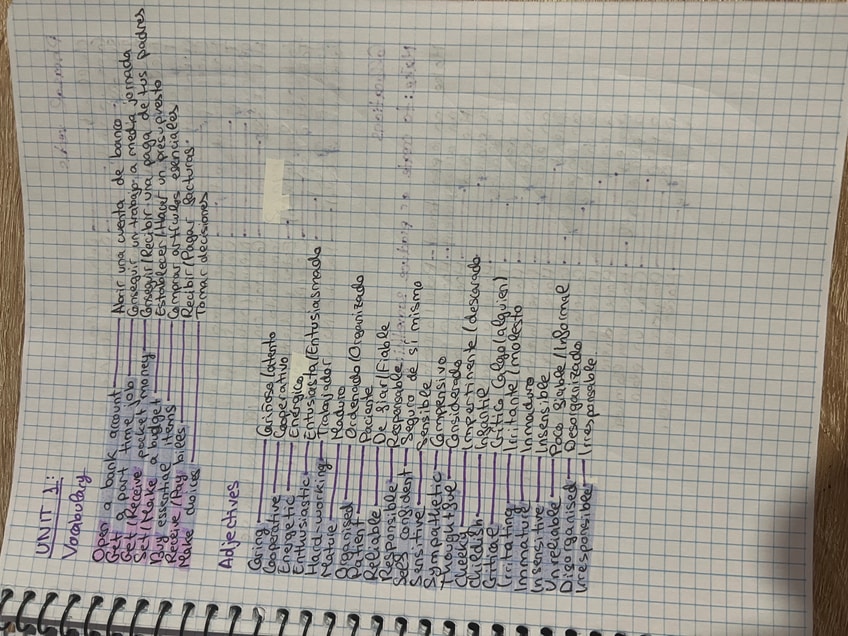 UNIT 1:
Vocabulary
Open a bank account — Abrir una cuenta de banco.
Get a part time job — Conseguir un trabajo a media jornada
Get/Receive pocket money — Conseguir/Recibir una paga de tus padres
Set/Make a budget — Establecer/Hacer un presupuesto
Buy essential items — Comprar artículos esenciales
Receive/Pay bills — Recibir/Pagar facturas.
Make choices — Tomar decisiones
Adjectives
Caring — Cariñoso/atento
Cooperative — Cooperativo
Energetic — Energico
Enthusiastic — Entusiasta/Entusiasmado
Hard-working — Trabajador
Mature — Maduro
Organised — Ordenado/Organizado
Patient — Paciente
Reliable — De fiar/Fiable
Responsible — Responsable
Self confident — Seguro de sí mismo
Sensitive — Sensible
Sympathetic — Compensivo
Thoughtful — Considerado
Cheeky — Impertinente/descarado
Childish — Infantil
Critical — Crítico (algo/alguien)
Irritating — Irritante/molesto
Immature — Inmaduro
Insensitive — Insensible
Unreliable — Poco fiable/Informal
Disorganised — Desorganizado
Irresponsible — Irresponsable